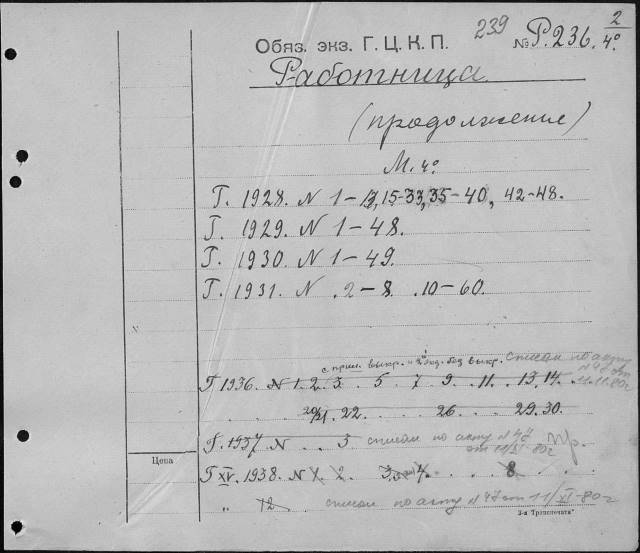 239 2/4º
Обяз. экз. Г. Ц. К. П. № Р.236.
Работница
(продолжение)
М. 4º
Г. 1928. N 1-13, 15-33, 35-40, 42-48.
Г. 1929. N 1-48.
Г. 1930. N 1-49.
Г. 1931. N .2-8. .10-60.
с прил. выкр. и без выкр. списан по акту
N 47 от
11.11.80г
Г 1936. N 1. 2. 3. 5 7 9. 11. 13. 14.
20/21. 22. 26. 29. 30.
Г. 1937 N . . 3 списан по акту N 47
от 11/XI-80г
Цена
Г XV. 1938. N 1. 2 3 4. 8
" 12 списан по акту N 47 от 11/XI-80г
3-я Транспечать